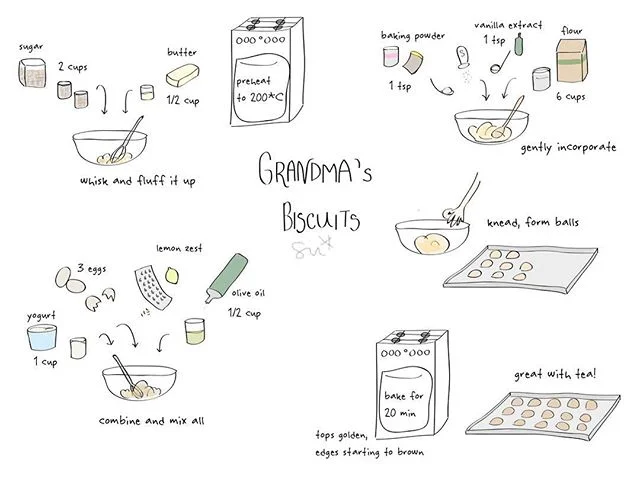 GRANDMA'S
BISCUITS
su*
sugar
2 cups
butter
1/2 cup
whisk and fluff it up
preheat
to 200°C
3 eggs
lemon zest
olive oil
1/2 cup
yogurt
1 cup
combine and mix all
baking powder
1 tsp
vanilla extract
1 tsp
flour
6 cups
gently incorporate
knead, form balls
bake for
20 min
tops golden,
edges starting to brown
great with tea!